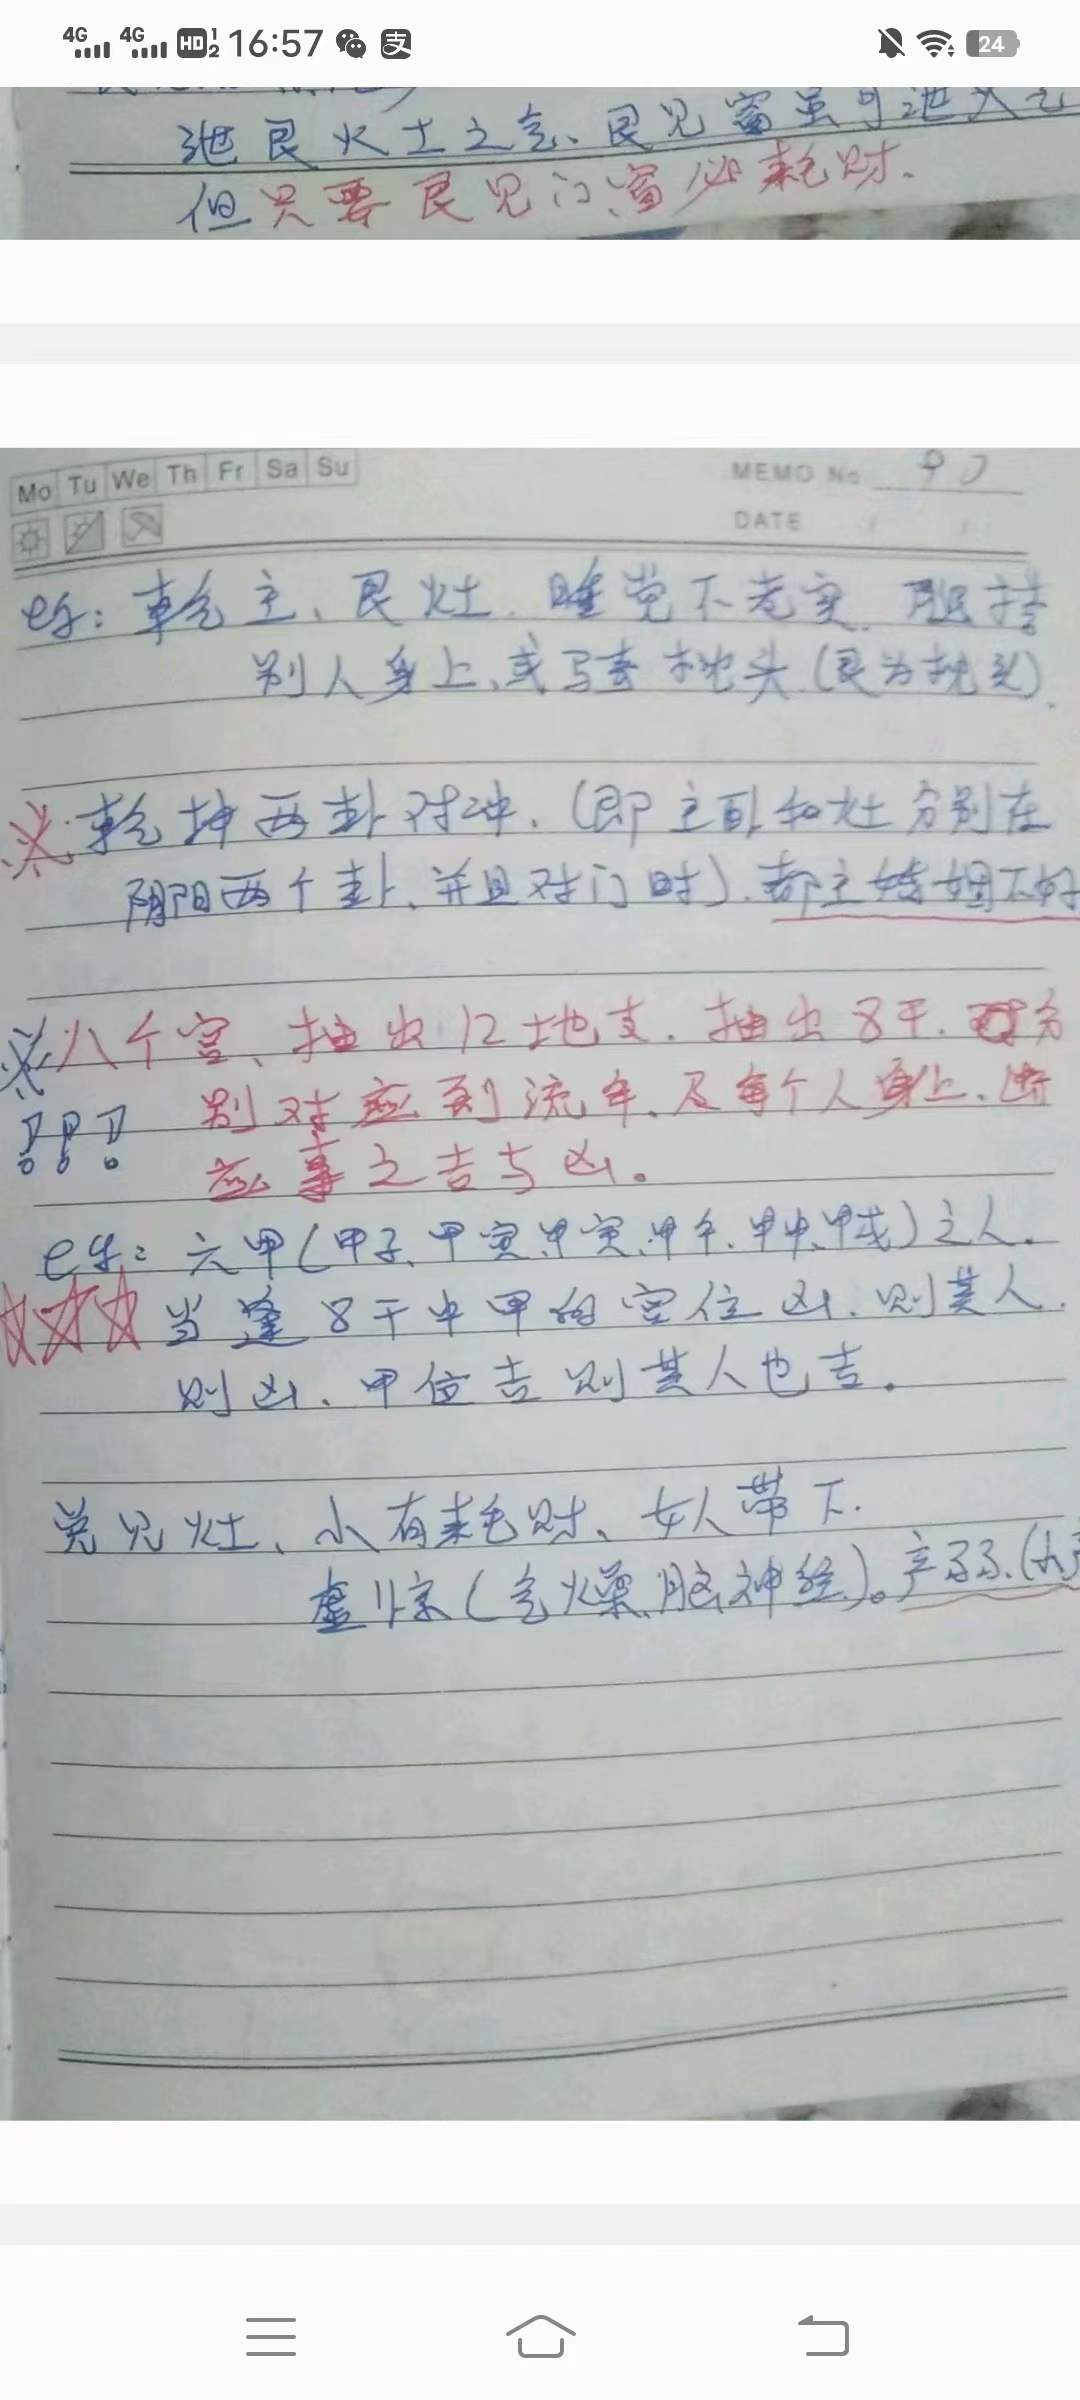 4G 4G HD 1 2 16:57 支 24
泄艮火土之气、艮见窗虽可泄火
但只要艮见门、窗必耗财、
Mo Tu We Th Fr Sa Su
MEMO No 90
DATE / /
eg: 乾主、艮灶、睡觉不老实、腿搭
别人身上、或骑枕头(艮为枕头).
※ 乾坤两卦对冲、(即主卧和灶分别在
阴阳两个卦、并且对门时)、都主婚姻不好
※ 八个宫、抽出12地支、抽出8干、分
!!! 别对应到流年、及每个人身上、断
应事之吉与凶。
eg: 六甲(甲子、甲寅、甲寅、甲午、甲申、甲戌)之人、
☆☆☆ 当逢8干中甲的宫位凶、则其人
则凶、甲位吉则其人也吉。
兑见灶、小有耗财、女人带下.
虚惊(气燥、脑神经)。产弱、(小